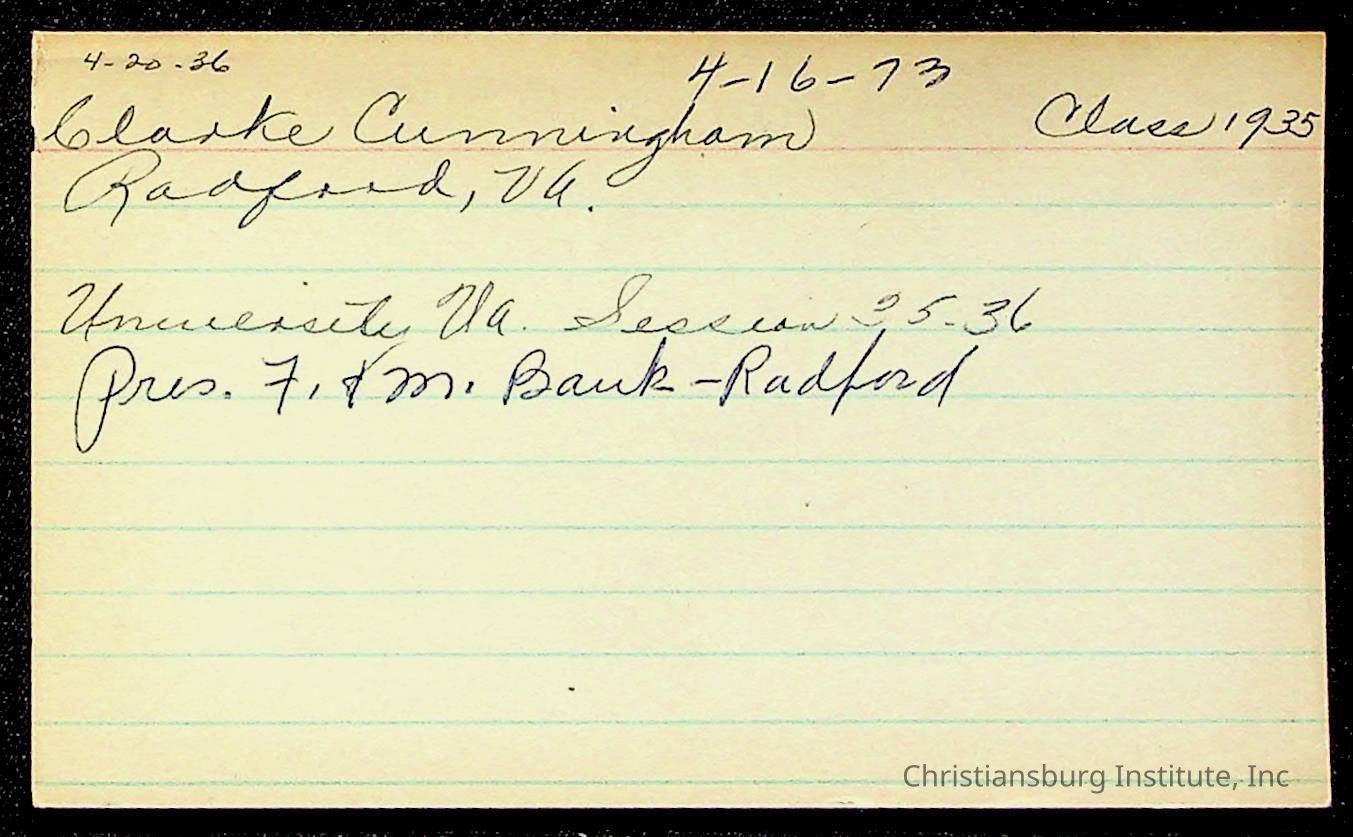 4-20-36
4-16-73
Clarke Cunningham Class 1935
Radford, Va.
University Va. Session 35-36
Pres. F. & M. Bank - Radford
Christiansburg Institute, Inc